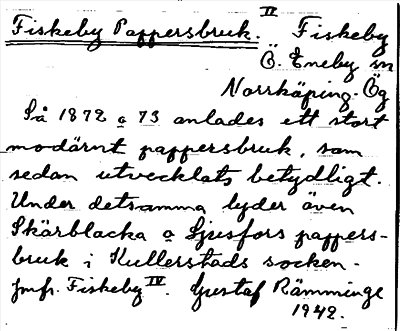 Fiskeby Pappersbruk. II Fiskeby
Ö. Eneby sn
Norrköping. Ög
Så 1872 a 73 anlades ett stort
modärnt pappersbruk, som
sedan utvecklats betydligt.
Under detsamma lyder även
Skärblacka o Ljusfors pappers-
bruk i Kullerstads socken.
Jmfr. Fiskeby IV. Gustaf Rämminge
1942.